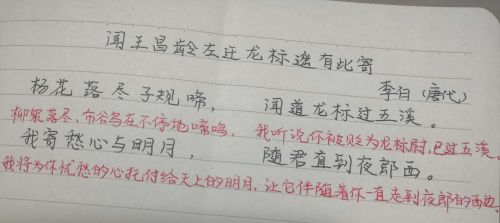 闻王昌龄左迁龙标遥有此寄
李白(唐代)
杨花落尽子规啼, 闻道龙标过五溪。
柳絮落尽,布谷鸟在不停地啼鸣, 我听说你被贬为龙标尉,已过五溪。
我寄愁心与明月, 随君直到夜郎西。
我将为你忧愁的心托付给天上的明月, 让它伴随着你一直走到夜郎的西边。